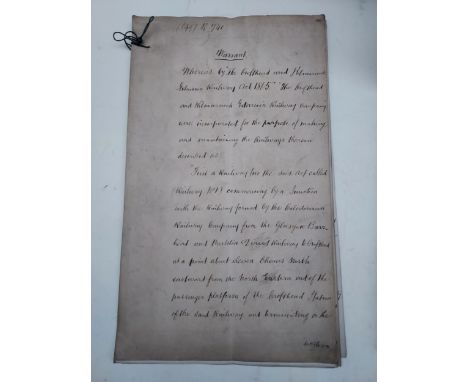 Warrant
Whereas by "the Crofthead and Kilmarnock
Extension Railway Act 1865" the Crofthead
and Kilmarnock Extension Railway Company
were incorporated for the purpose of making
and maintaining the Railways therein
described viz:
"First a Railway (in the said Act called
Railway No 1) commencing by a Junction
with the Railway formed by the Caledonian
Railway Company from the Glasgow Barr-
head and Neilston Direct Railway to Crofthead
at a point about eleven Chains North
eastward from the North Eastern end of the
passenger platform of the Crofthead Station
of the said Railway and terminating in the